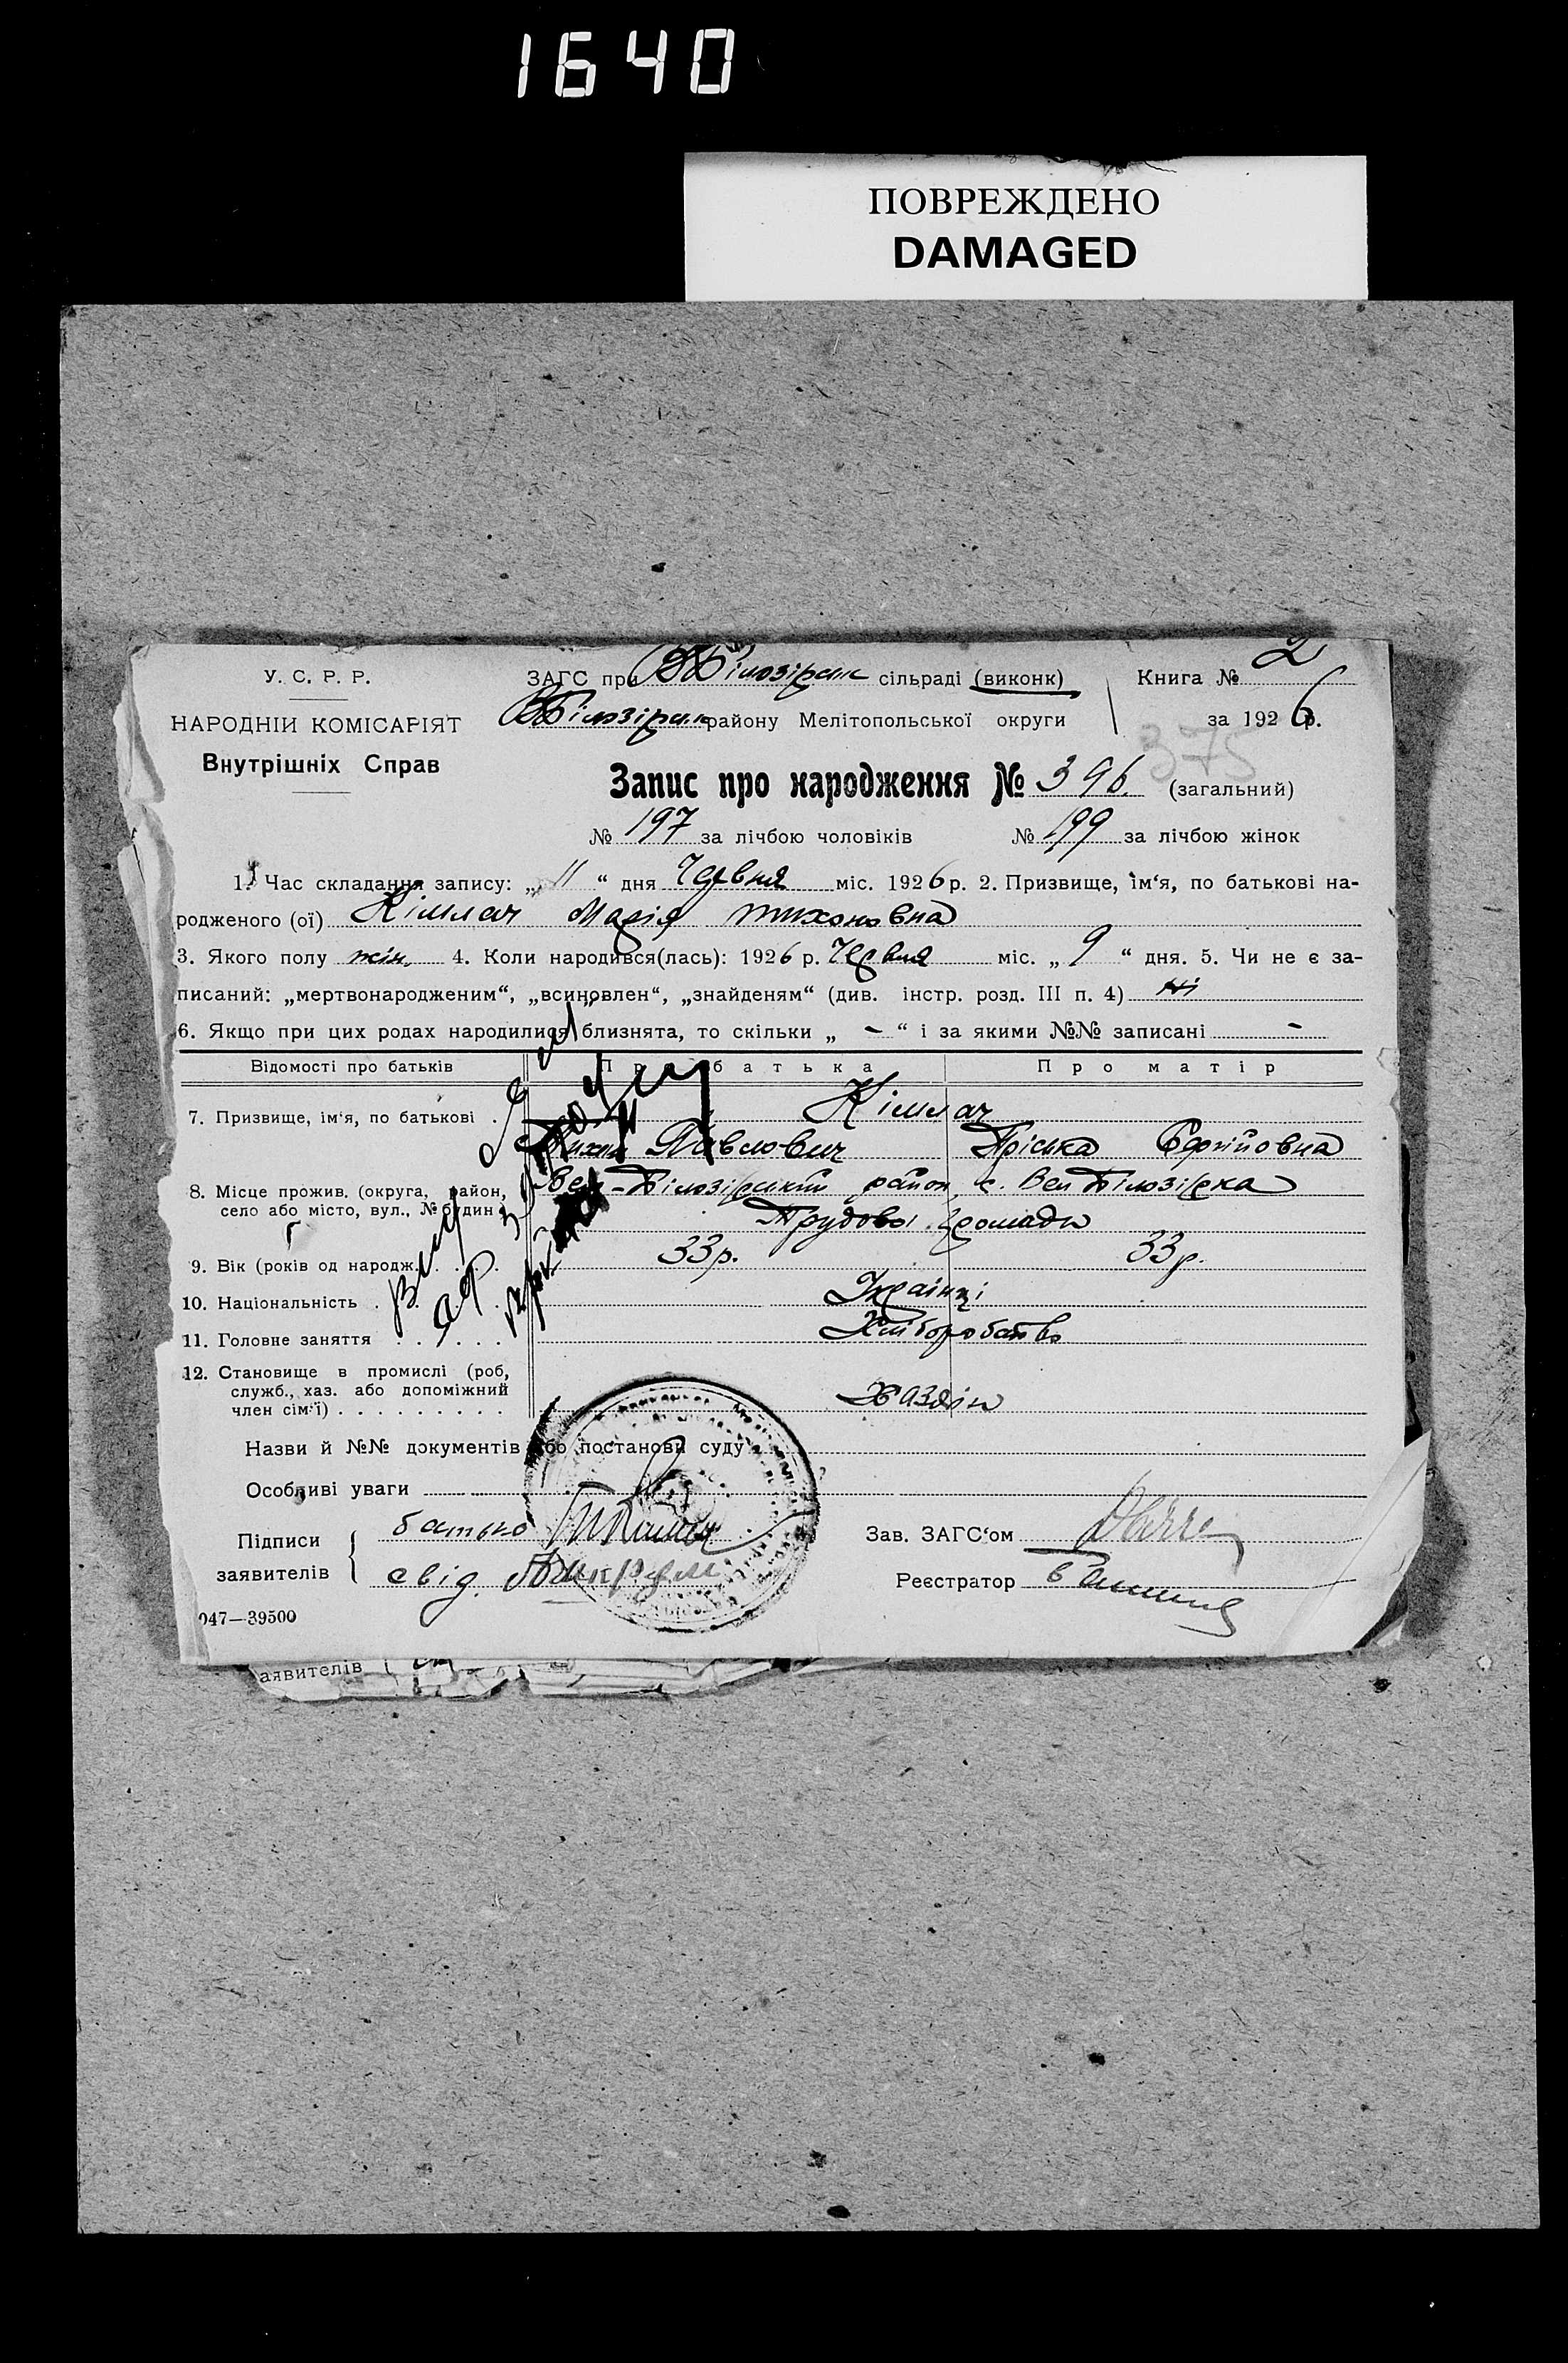 1640
ПОВРЕЖДЕНО
DAMAGED
У. С. Р. Р.
НАРОДНІЙ КОМІСАРІЯТ
Внутрішніх Справ
ЗАГС при В Білозірськ сільраді (виконк)
В Білозірськ району Мелітопольської округи
Книга № 2
за 1926 р.
375
Запис про народження № 396. (загальний)
№ 197 за лічбою чоловіків № 199 за лічбою жінок
1. Час складання запису: „ 11 “ дня Червня міс. 1926 р. 2. Призвище, ім‘я, по батькові на-
родженого (ої) Кіммач Марія Тихоновна
3. Якого полу жін. 4. Коли народився(лась): 1926 р. Червня міс. „ 9 “ дня. 5. Чи не є за-
писаний: „мертвонародженим“, „всиновлен“, „знайденям“ (див. інстр. розд. III п. 4) ні
6. Якщо при цих родах народилися близнята, то скільки „ - “ і за якими №№ записані -
Відомості про батьків Про батька Про матір
7. Призвище, ім‘я, по батькові . Кіммач
Тихон Павлович Пріська Єфрійовна
8. Місце прожив. (округа, район, Вел-Білозірський район, с. Вел Білозірка
село або місто, вул., № будин. Трудової громади
9. Вік (років од народж. . . . . 33р. 33р.
10. Національність . . . . Українці
11. Головне заняття . . . . . . Хліборобство
12. Становище в промислі (роб,
служб., хаз. або допоміжний Хазяїн
член сім‘ї) . . . . . . . . .
Назви й №№ документів або постанови суду
Особливі уваги
Підписи батько
заявителів свід.
Зав. ЗАГС‘ом
Реєстратор
047—39500
аявителів